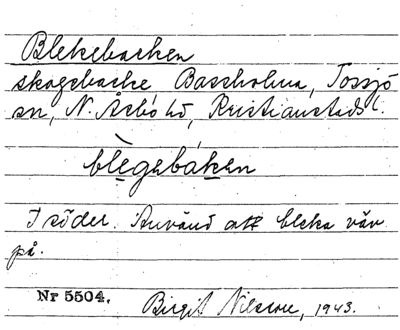 Blekebacken
skogsbacke, Baseholma, Tossjö
sn, N. Åsbo hd, Kristianstads l.
blègebáken
I söder. Använd att bleka väv
på.
Nr 5504.
Birgit Nilsson, 1943.